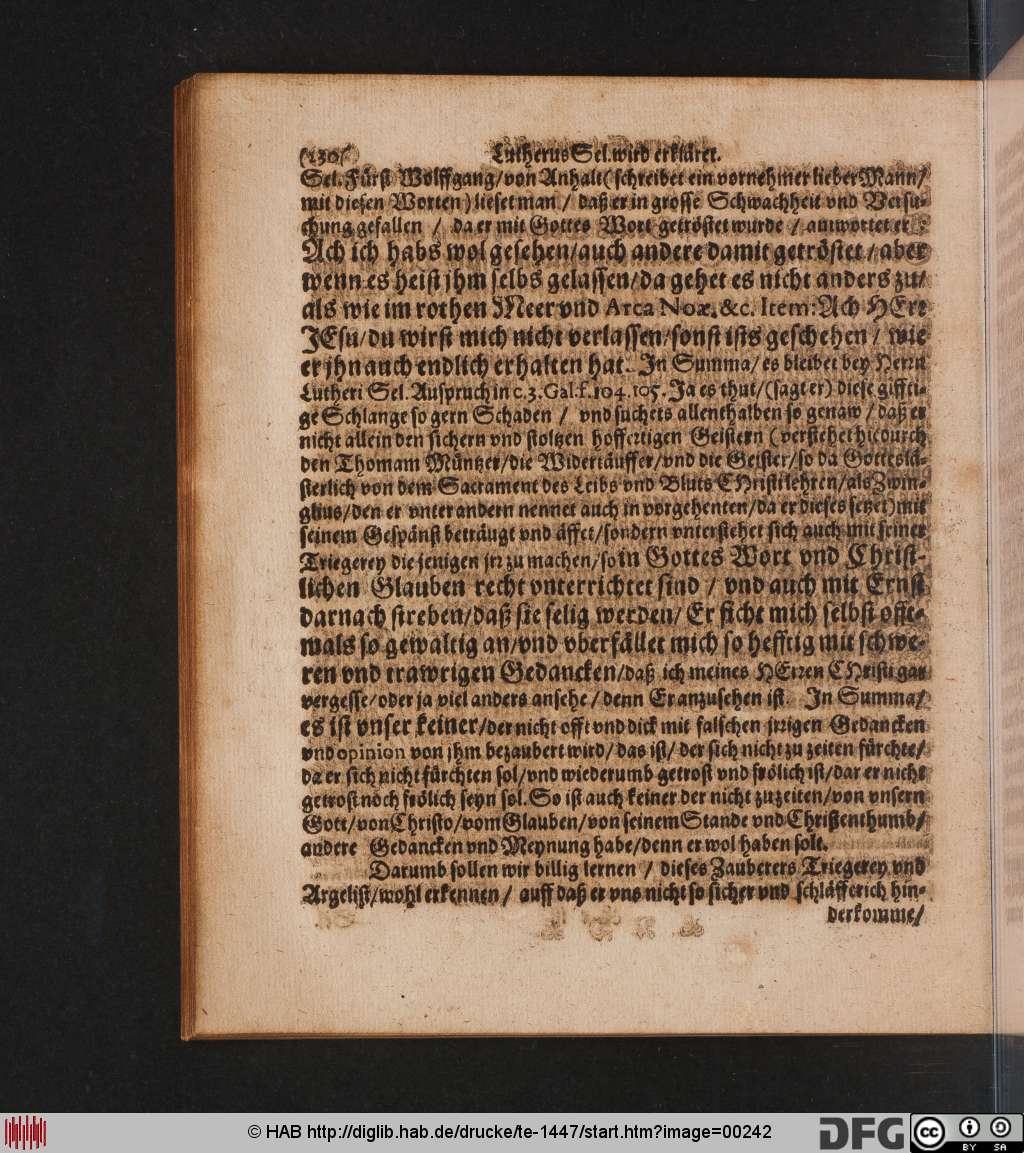 (130)
Lutherus Sel. wird erkläret.
Sel. Fürst Wolffgang/ von Anhalt (schreibet ein vornehmer lieber Mann/
mit diesen Worten) lieset man / daß er in grosse Schwachheit vnd Versu-
chung gefallen / da er mit Gottes Wort getröstet wurde / antwortet er:
Ach ich habs wol gesehen/ auch andere damit getröstet/ aber
wenn es heist jhm selbs gelassen/ da gehet es nicht anders zu/
als wie im rothen Meer vnd Arca Noæ, &c. Item: Ach HErr
JEsu/ du wirst mich nicht verlassen/ sonst ists geschehen/ wie
er jhn auch endlich erhalten hat. In Summa/ es bleibet bey Herrn
Lutheri Sel. Auspruch in c. 3. Gal. f. 104. 105. Ja es thut/ (sagt er) diese giffti-
ge Schlange so gern Schaden / vnd suchets allenthalben so genaw / daß er
nicht allein den sichern vnd stoltzen hoffertigen Geistern (verstehet hiedurch
den Thomam Müntzer/ die Widertäuffer/ vnd die Geister/ so da Gotteslä-
sterlich von dem Sacrament des Leibs vnd Bluts CHristi lehren/ als Zwin-
glius/ den er vnter andern nennet auch in vorgehenten/ da er dieses setzet) mit
seinem Gespänst beträugt vnd äffet/ sondern vnterstehet sich auch mit seiner
Triegerey die jenigen jrr zu machen/ so in Gottes Wort vnd Christ-
lichen Glauben recht vnterrichtet sind / vnd auch mit Ernst
darnach streben/ daß sie selig werden/ Er ficht mich selbst offt-
mals so gewaltig an/ vnd vberfället mich so hefftig mit schwe-
ren vnd trawrigen Gedancken/ daß ich meines HErren CHristi gar
vergesse/ oder ja viel anders ansehe / denn Er anzusehen ist. In Summa/
es ist vnser keiner/ der nicht offt vnd dick mit falschen jrrigen Gedancken
vnd opinion von jhm bezaubert wird/ das ist/ der sich nicht zu zeiten fürchte/
da er sich nicht fürchten sol/ vnd wiederumb getrost vnd frölich ist/ dar er nicht
getrost noch frölich seyn sol. So ist auch keiner der nicht zuzeiten/ von vnsern
Gott/ von Christo/ vom Glauben/ von seinem Stande vnd Christenthumb/
andere Gedancken vnd Meynung habe/ denn er wol haben solt.
Darumb sollen wir billig lernen / dieses Zauberers Triegerey vnd
Argelist/ wohl erkennen / auff daß er vns nicht so sicher vnd schläfferich hin-
derkomme/
© HAB http://diglib.hab.de/drucke/te-1447/start.htm?image=00242
DFG
cc
BY SA